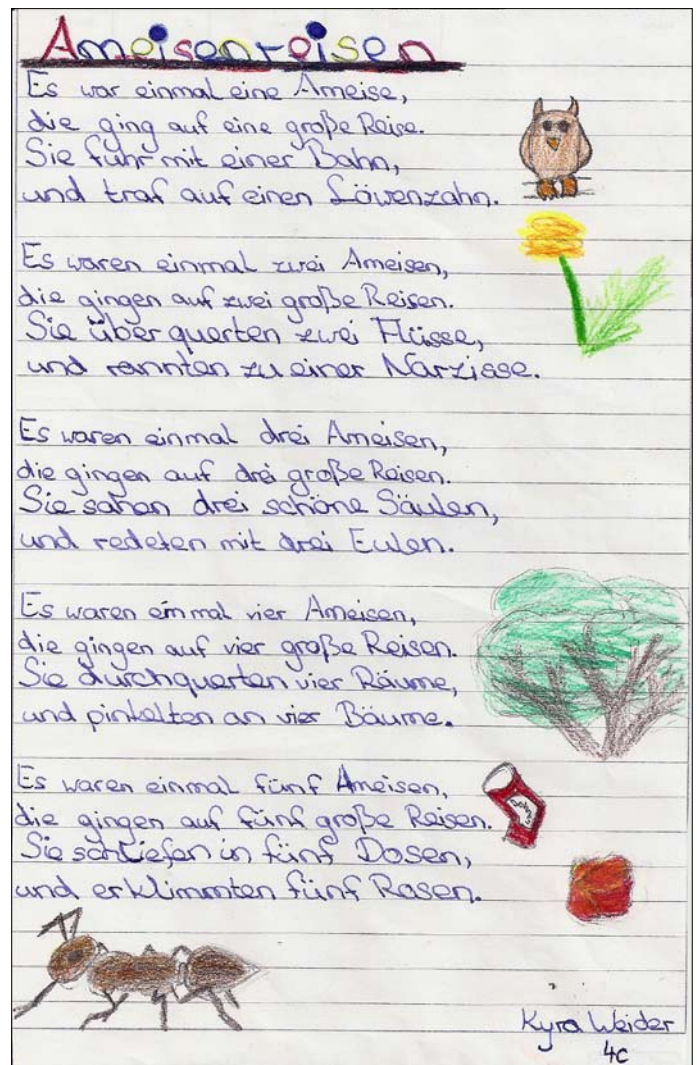 Ameisenreisen
Es war einmal eine Ameise,
die ging auf eine große Reise.
Sie fuhr mit einer Bahn,
und traf auf einen Löwenzahn.
Es waren einmal zwei Ameisen,
die gingen auf zwei große Reisen.
Sie überquerten zwei Flüsse,
und rannten zu einer Narzisse.
Es waren einmal drei Ameisen,
die gingen auf drei große Reisen.
Sie sahen drei schöne Säulen,
und redeten mit drei Eulen.
Es waren einmal vier Ameisen,
die gingen auf vier große Reisen.
Sie durchquerten vier Räume,
und pinkelten an vier Bäume.
Es waren einmal fünf Ameisen,
die gingen auf fünf große Reisen.
Sie schliefen in fünf Dosen,
und erklimmten fünf Rosen.
Kyra Weider
4c